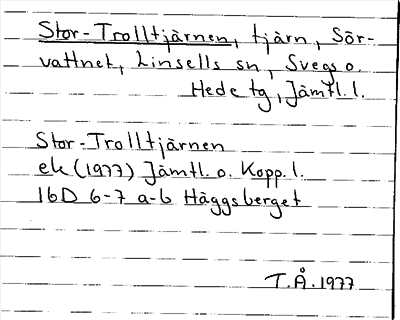 Stor-Trolltjärnen, tjärn, Sör-
vattnet, Linsells sn, Svegs o.
Hede tg, Jämtl. l.
Stor-Trolltjärnen
ek (1977) Jämtl. o. Kopp. l.
16D 6-7 a-b Häggsberget
T.Å. 1977